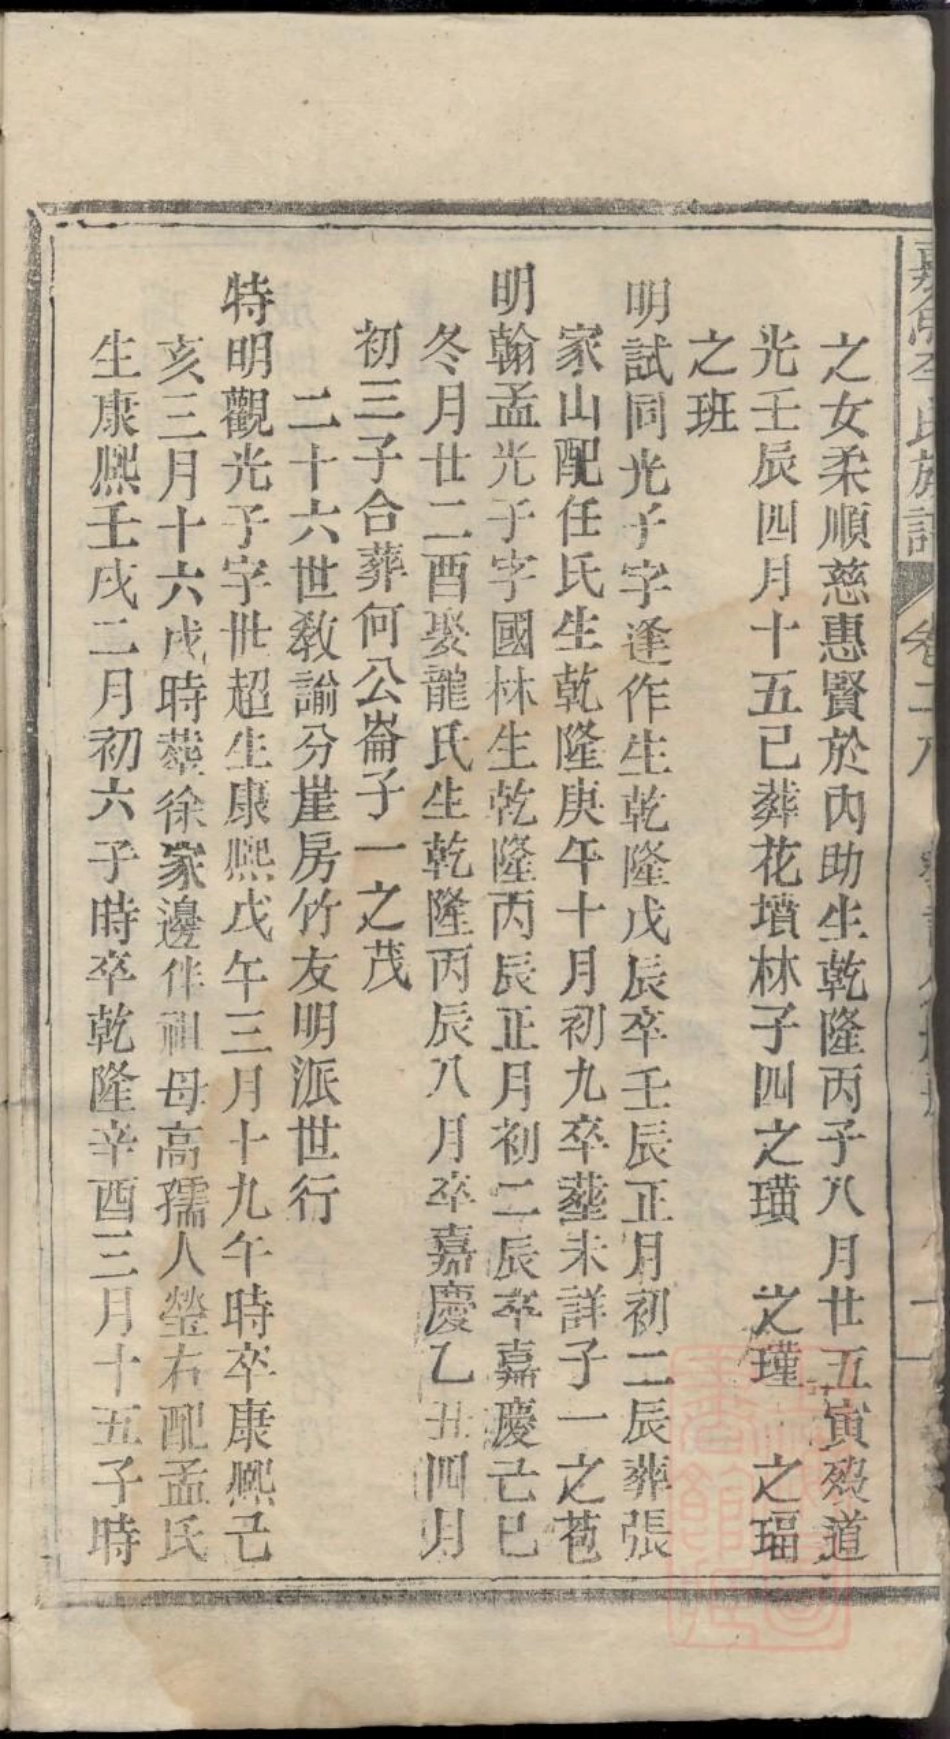 李氏族譜
之女柔順慈惠賢於內助生乾隆丙子八月廿五寅歿道
光壬辰四月十五巳葬花墳林子四之璜 之瑾 之瑞
之班
明試同光子字逢作生乾隆戊辰卒壬辰正月初二辰葬張
家山配任氏生乾隆庚午十月初九卒塟未詳子一之苞
明翰孟光子字國林生乾隆丙辰正月初二辰卒嘉慶己巳
冬月廿二酉娶龍氏生乾隆丙辰八月卒嘉慶乙丑四月
初三子合葬何公崙子一之茂
二十六世教諭分崖房竹友明派世行
特明觀光子字世超生康熙戊午三月十九午時卒康熙己
亥三月十六戌時塟徐家邊伴祖母高孺人塋右配孟氏
生康熙壬戌二月初六子時卒乾隆辛酉三月十五子時